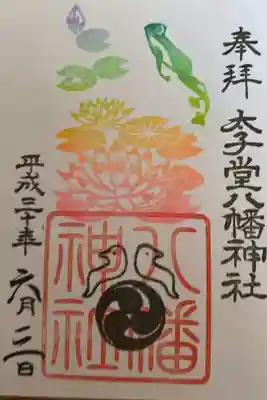 奉拝
太子堂八幡神社
八幡
神社
平成三十年
六月二日